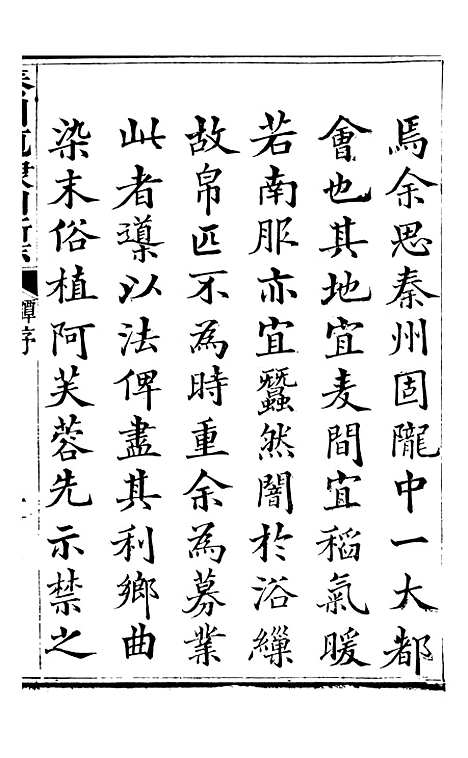 焉余思秦州固隴中一大都
會也其地宜麦間宜稻氣暖
若南服亦宜蠶然闇於浴繅
故帛匹不為時重余為募業
此者導以法俾盡其利鄉曲
染末俗植阿芙蓉先示禁之
譚序